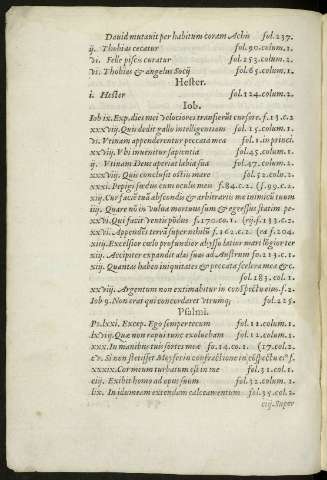 Dauid mutauit per habitum coram Achis fol.237.
ij. Thobias cecatur fol.90.colum.1.
vi. Felle piscis curatur fol.253.colum.2.
vi. Thobias & angelus Socij fol.65.colum.1.
Hester.
i. Hester fol.124.colum.2.
Iob.
Iob ix. Exp. dies mei velociores transierũt cursore. f.13.c.2
xxxviij. Quis dedit gallo intelligentiam fol.15.colum.1.
vi. Vtinam appenderentur peccata mea fol.1.in princi.
xxviij. Vbi inuenitur sapientia fol.45.colum.1.
ij. Vtinam Deus aperiat labia sua fol.47.colum.2.
xxxviij. Quis conclusit ostiis mare fol.52.colū.2.
xxxi. Pepigi fœdus cum oculis meis f.84.c.2. (f.99.c.2.
xiij. Cur faciē tuā abscondis & arbitraris me inimicũ tuum
iij. Quare nõ in vulua mortuus sum & egressus statim pe-
xxvi. Qui facit ventis põdus f.170.co.1. (rij.f.133.c.2.
xxvi. Appendit terrā super nihilũ f.162.c.2. (ra f.204.
xiij. Excelsior cœlo profundior abysso latius mari lõgior ter
xiij. Accipiter expandit alas suas ad Austrum fo.213.c.1.
xiij. Quantas habeo iniquitates & peccata scelera mea &c.
fol.183.col.1.
xxviij. Argentum non extimabitur in cõspectu eius.f.2.
Iob 9. Non erat qui concordaret vtrumq; fol.225.
Psalmi.
Ps.lxxi. Excep. Ego semper tecum fol.11.colum.1.
lxviij. Quæ non rapui tunc exoluebam fol.12.colum.1.
xxx. In manibus tuis sortes meæ fo.14.co.1. (17.col.2.
cv. Si non stetisset Moyses in confractione in cõspectu eiꝰ f.
xxxix. Cor meum turbatum est in me fol.31.col.1.
ciij. Exibit homo ad opus suum fol.32.colum.1.
lix. In idumeam extendam calceamentum fol.38.col.2.
viij. Super